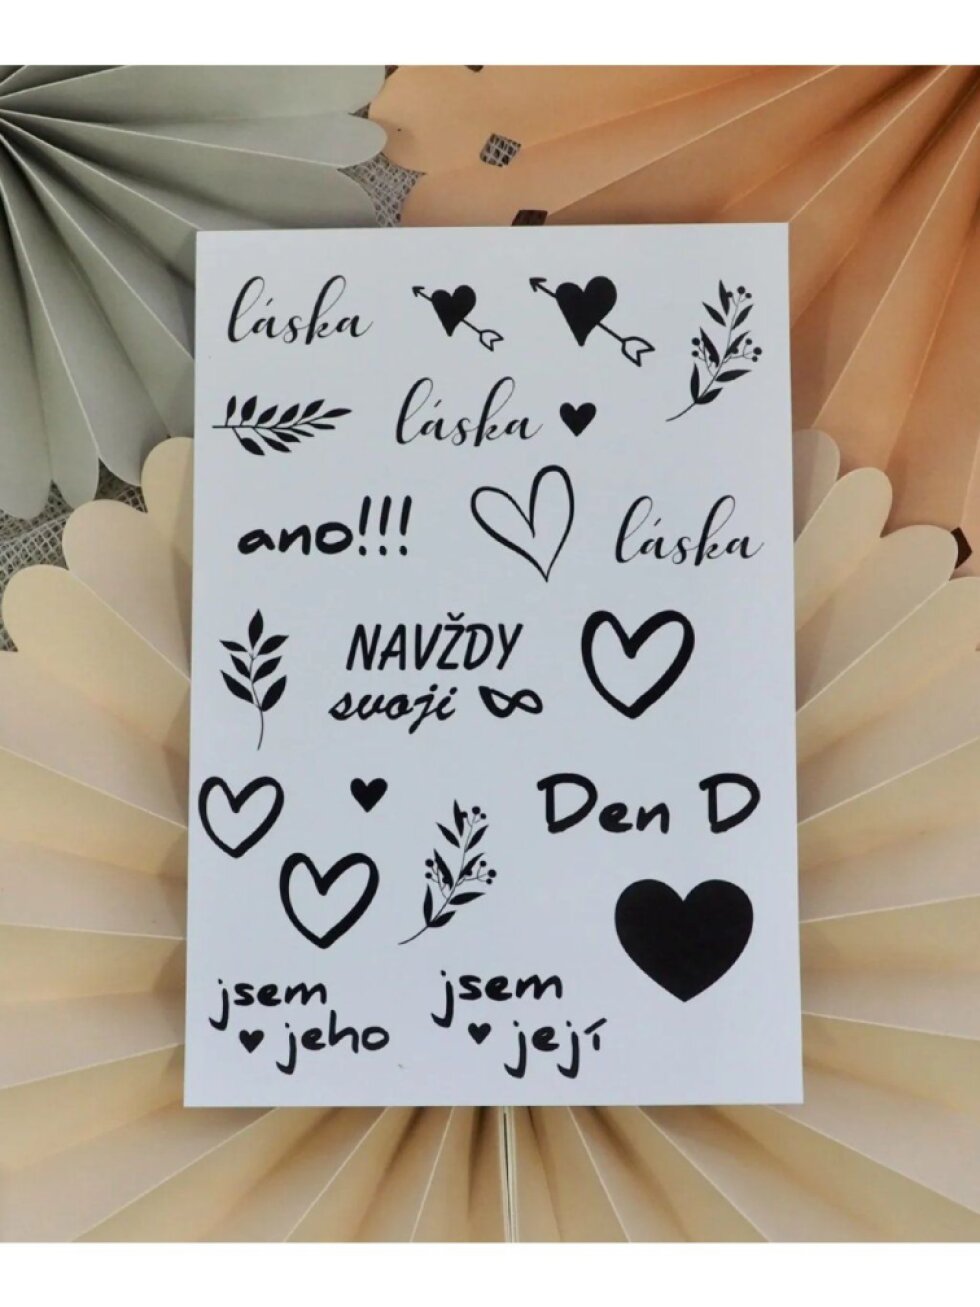 láska
láska
ano!!!
láska
NAVŽDY
svoji
Den D
jsem
jeho
jsem
její